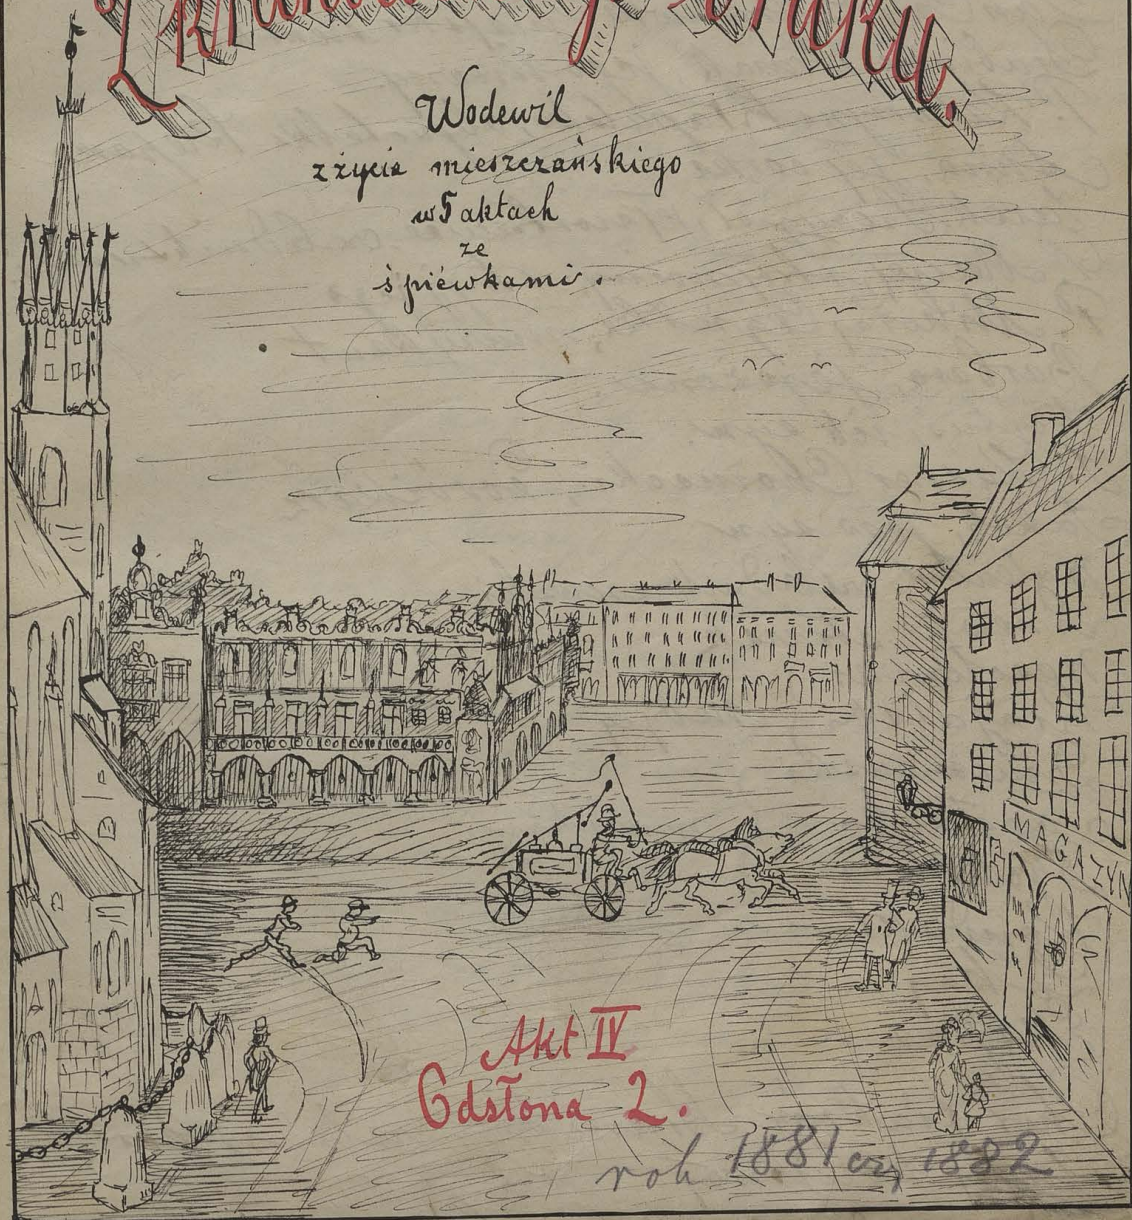 Z krakowskiego bruku.
Wodewil
z życia mieszczańskiego
w 5 aktach
ze
śpiéwkami.
MAGAZYN
Akt IV
Odsłona 2.
rok 1881 czy 1882